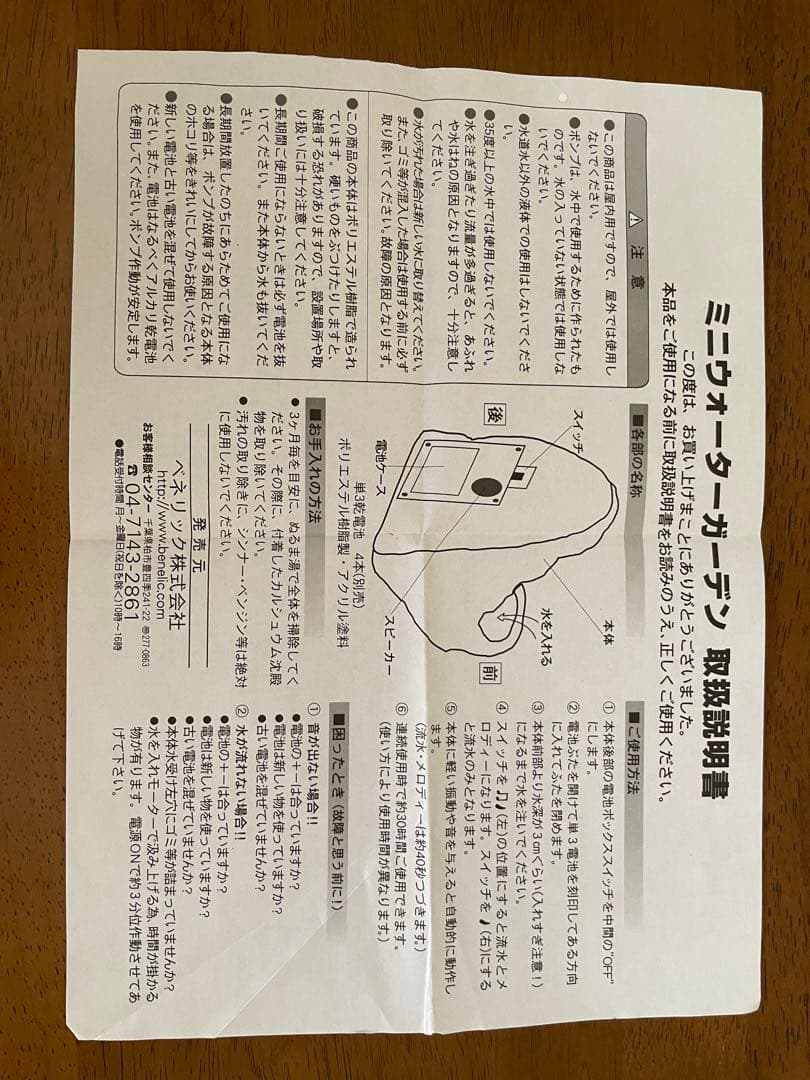 ミニウォーターガーデン 取扱説明書
この度は、お買い上げまことにありがとうございました。
本品をご使用になる前に取扱説明書をお読みのうえ、正しくご使用ください。
注 意
●この商品は屋内用ですので、屋外では使用し
ないでください。
●ポンプは、水中で使用するために作られたも
のです。水の入っていない状態では使用しな
いでください。
●水道水以外の液体での使用はしないでくださ
い。
●35度以上の水中では使用しないでください。
●水を注ぎ過ぎたり流量が多過ぎると、あふれ
や水はねの原因となりますので、十分注意し
てください。
●水が汚れた場合は新しい水に取り替えてください。
また、ゴミ等が混入した場合は使用する前に必ず
取り除いてください。故障の原因となります。
●この商品の本体はポリエステル樹脂で造られ
ています。硬いものをぶつけたりしますと、
破損する恐れがありますので、設置場所や取
り扱いには十分注意してください。
●長期間ご使用にならないときは必ず電池を抜
いてください。また本体から水も抜いてくだ
さい。
●長期間放置したのちにあらためてご使用にな
る場合は、ポンプが故障する原因となる本体
のホコリ等をきれいにしてからお使いください。
●新しい電池と古い電池を混ぜて使用しないでく
ださい。また、電池はなるべくアルカリ乾電池
を使用してください。ポンプ作動が安定します。
■各部の名称
後
スイッチ
本体
水を入れる
前
電池ケース
スピーカー
単3乾電池 4本(別売)
ポリエステル樹脂製・アクリル塗料
■お手入れの方法
●3ヶ月毎を目安に、ぬるま湯で全体を掃除してく
ださい。その際に、付着したカルシュウム沈殿
物を取り除いてください。
●汚れの取り除きに、シンナー・ベンジン等は絶対
に使用しないでください。
発 売 元
ベネリック株式会社
http://www.benelic.com
お客様相談センター 千葉県柏市豊四季241-22 〠277-0863
☎04-7143-2861
●電話受付時間 月～金曜日(祝日を除く)10時～16時
■ご使用方法
① 本体後部の電池ボックススイッチを中間の"OFF"
にします。
② 電池ぶたを開けて単3電池を刻印してある方向
に入れてふたを閉めます。
③ 本体前部より水深が3cmぐらい(入れすぎ注意!)
になるまで水を注いでください。
④ スイッチを♫♩(左)の位置にすると流水とメ
ロディーになります。スイッチを♩(右)にする
と流水のみとなります。
⑤ 本体に軽い振動や音を与えると自動的に動作し
ます。
(流水・メロディーは約40秒つづきます。)
⑥ 連続使用時で約30時間ご使用できます。
(使い方により使用時間が異なります。)
■困ったとき(故障と思う前に!)
① 音が出ない場合!!
●電池の+-は合っていますか?
●電池は新しい物を使っていますか?
●古い電池を混ぜていませんか?
② 水が流れない場合!!
●電池の+-は合っていますか?
●電池は新しい物を使っていますか?
●古い電池を混ぜていませんか?
●本体水受け左穴にゴミ等が詰まっていませんか?
●水を入れモーターで汲み上げる為、時間が掛かる
物が有ります。電源ONで約3分位作動させてあ
げて下さい。